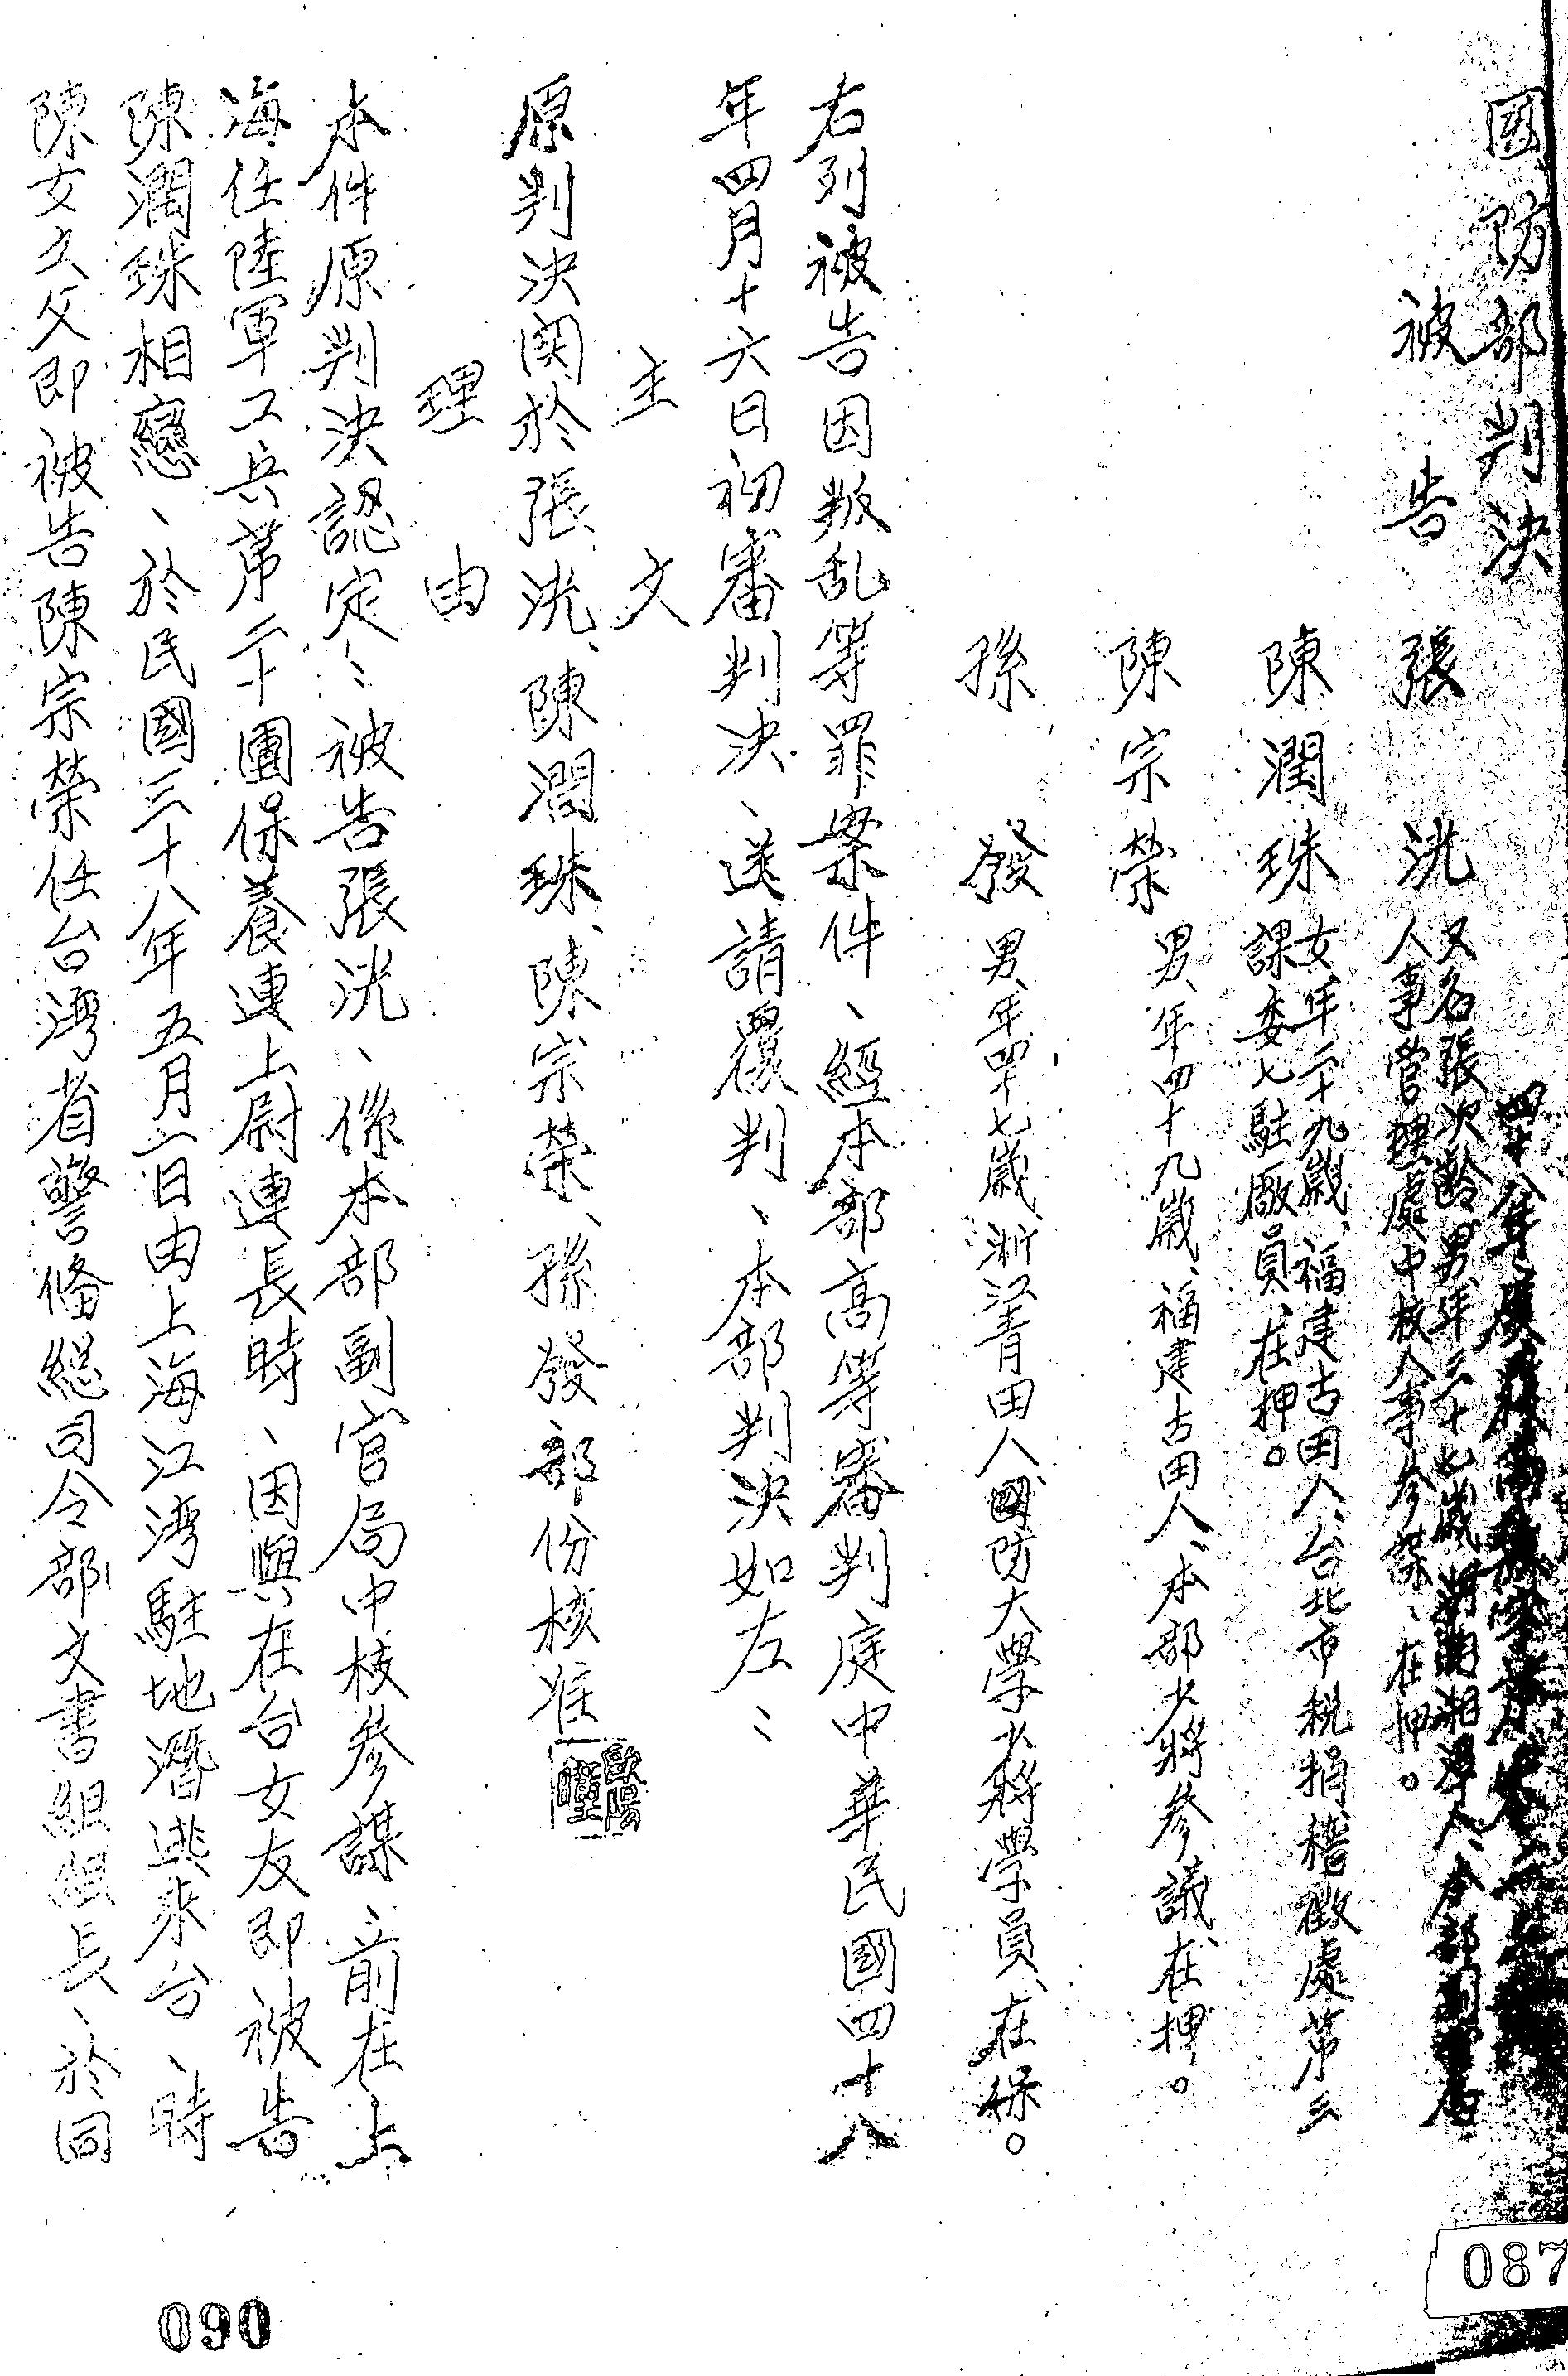 國防部判決
四十八年度
被告 張 洸 又名張次齡男年三十七歲湖南湘潭人、本部副官局
人事管理處中校人事參謀、在押。
陳潤珠 女、年二十九歲、福建古田人、台北市稅捐稽徵處第三
課委七駐廠員、在押。
陳宗榮 男、年四十九歲、福建古田人、本部少將參議、在押。
孫 發 男、年四十七歲、浙江青田人國防大學少將學員、在保。
右列被告因叛乱等罪案件、經本部高等審判庭中華民國四十八
年四月十六日初審判決、送請覆判、本部判決如左：
主文
原判決関於張洸、陳潤珠、陳宗榮、孫發部份核准
歐陽
理由
本件原判決認定：被告張洸、係本部副官局中校參謀、前在上
海任陸軍工兵第二十團保養連上尉連長時、因與在台女友即被告
陳潤珠相戀、於民國三十八年五月一日由上海江湾駐地潛逃來台、時
陳女之父即被告陳宗榮任台湾省警備総司令部文書組組長、於同
087
090